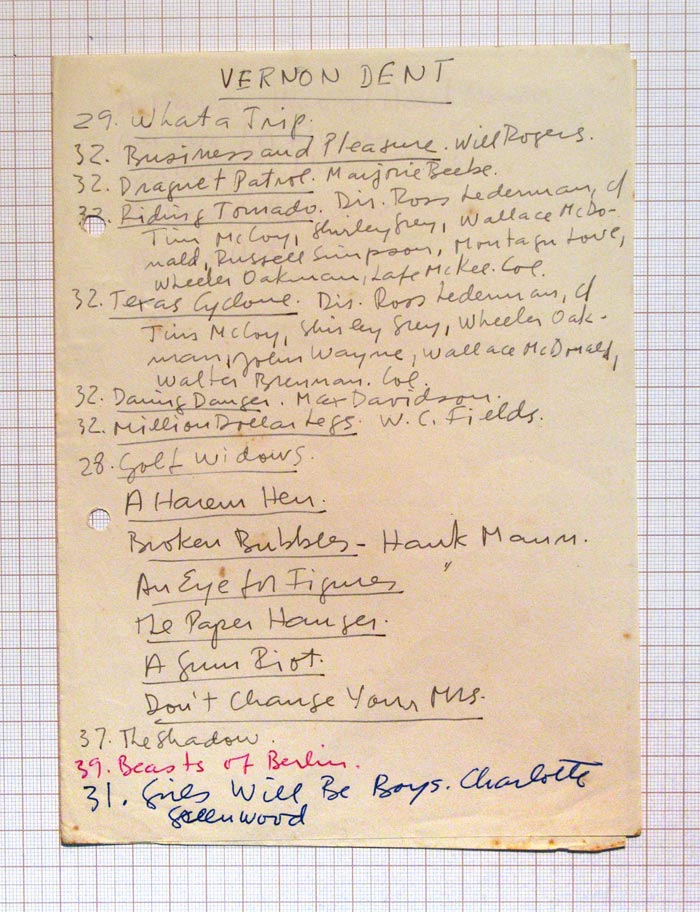 VERNON DENT
29. What a Trip.
32. Business and Pleasure. Will Rogers.
32. Dragnet Patrol. Marjorie Beebe.
32. Riding Tornado. Dir. Ross Lederman, c/
Tim McCoy, Shirley Grey, Wallace McDo-
nald, Russell Simpson, Montagu Love,
Wheeler Oakman, Lafe McKee. Col.
32. Texas Cyclone. Dir. Ross Lederman, c/
Tim McCoy, Shirley Grey, Wheeler Oak-
man, John Wayne, Wallace McDonald,
Walter Brennan. Col.
32. Daring Danger. Max Davidson.
32. Million Dollar Legs. W. C. Fields.
28. Golf Widows.
A Harem Hen.
Broken Bubbles - Hank Mann.
An Eye for Figures "
The Paper Hanger.
A Gum Riot.
Don't Change Your Mrs.
37. The Shadow.
39. Beasts of Berlin.
31. Girls Will Be Boys. Charlotte
Greenwood